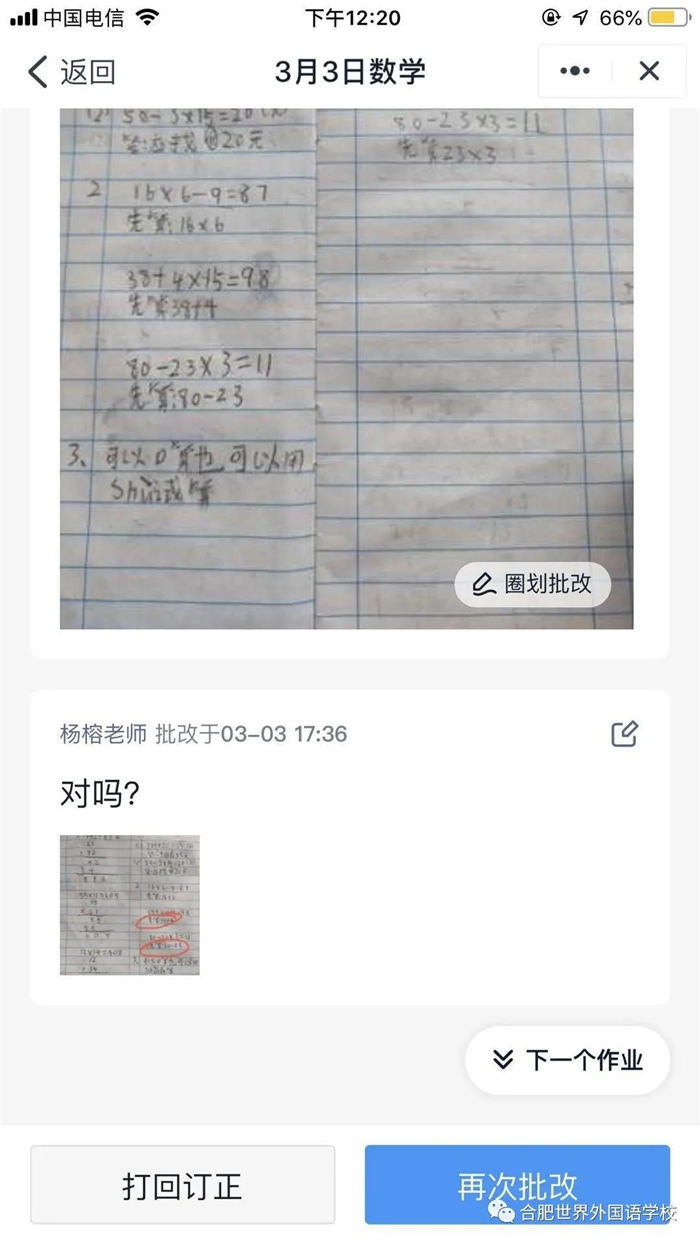 中国电信 下午12:20 66%
返回 3月3日数学
(2) 50-3×15=20(元)
答:应找20元
80-23×3=11
先算23×3
2 16×6-9=87
先算:16×6
38+4×15=98
先算38+4
80-23×3=11
先算:80-23
3、可以口算也可以用
Shù式算
圈划批改
杨榕老师 批改于03-03 17:36
对吗?
下一个作业
打回订正 再次批改
合肥世界外国语学校